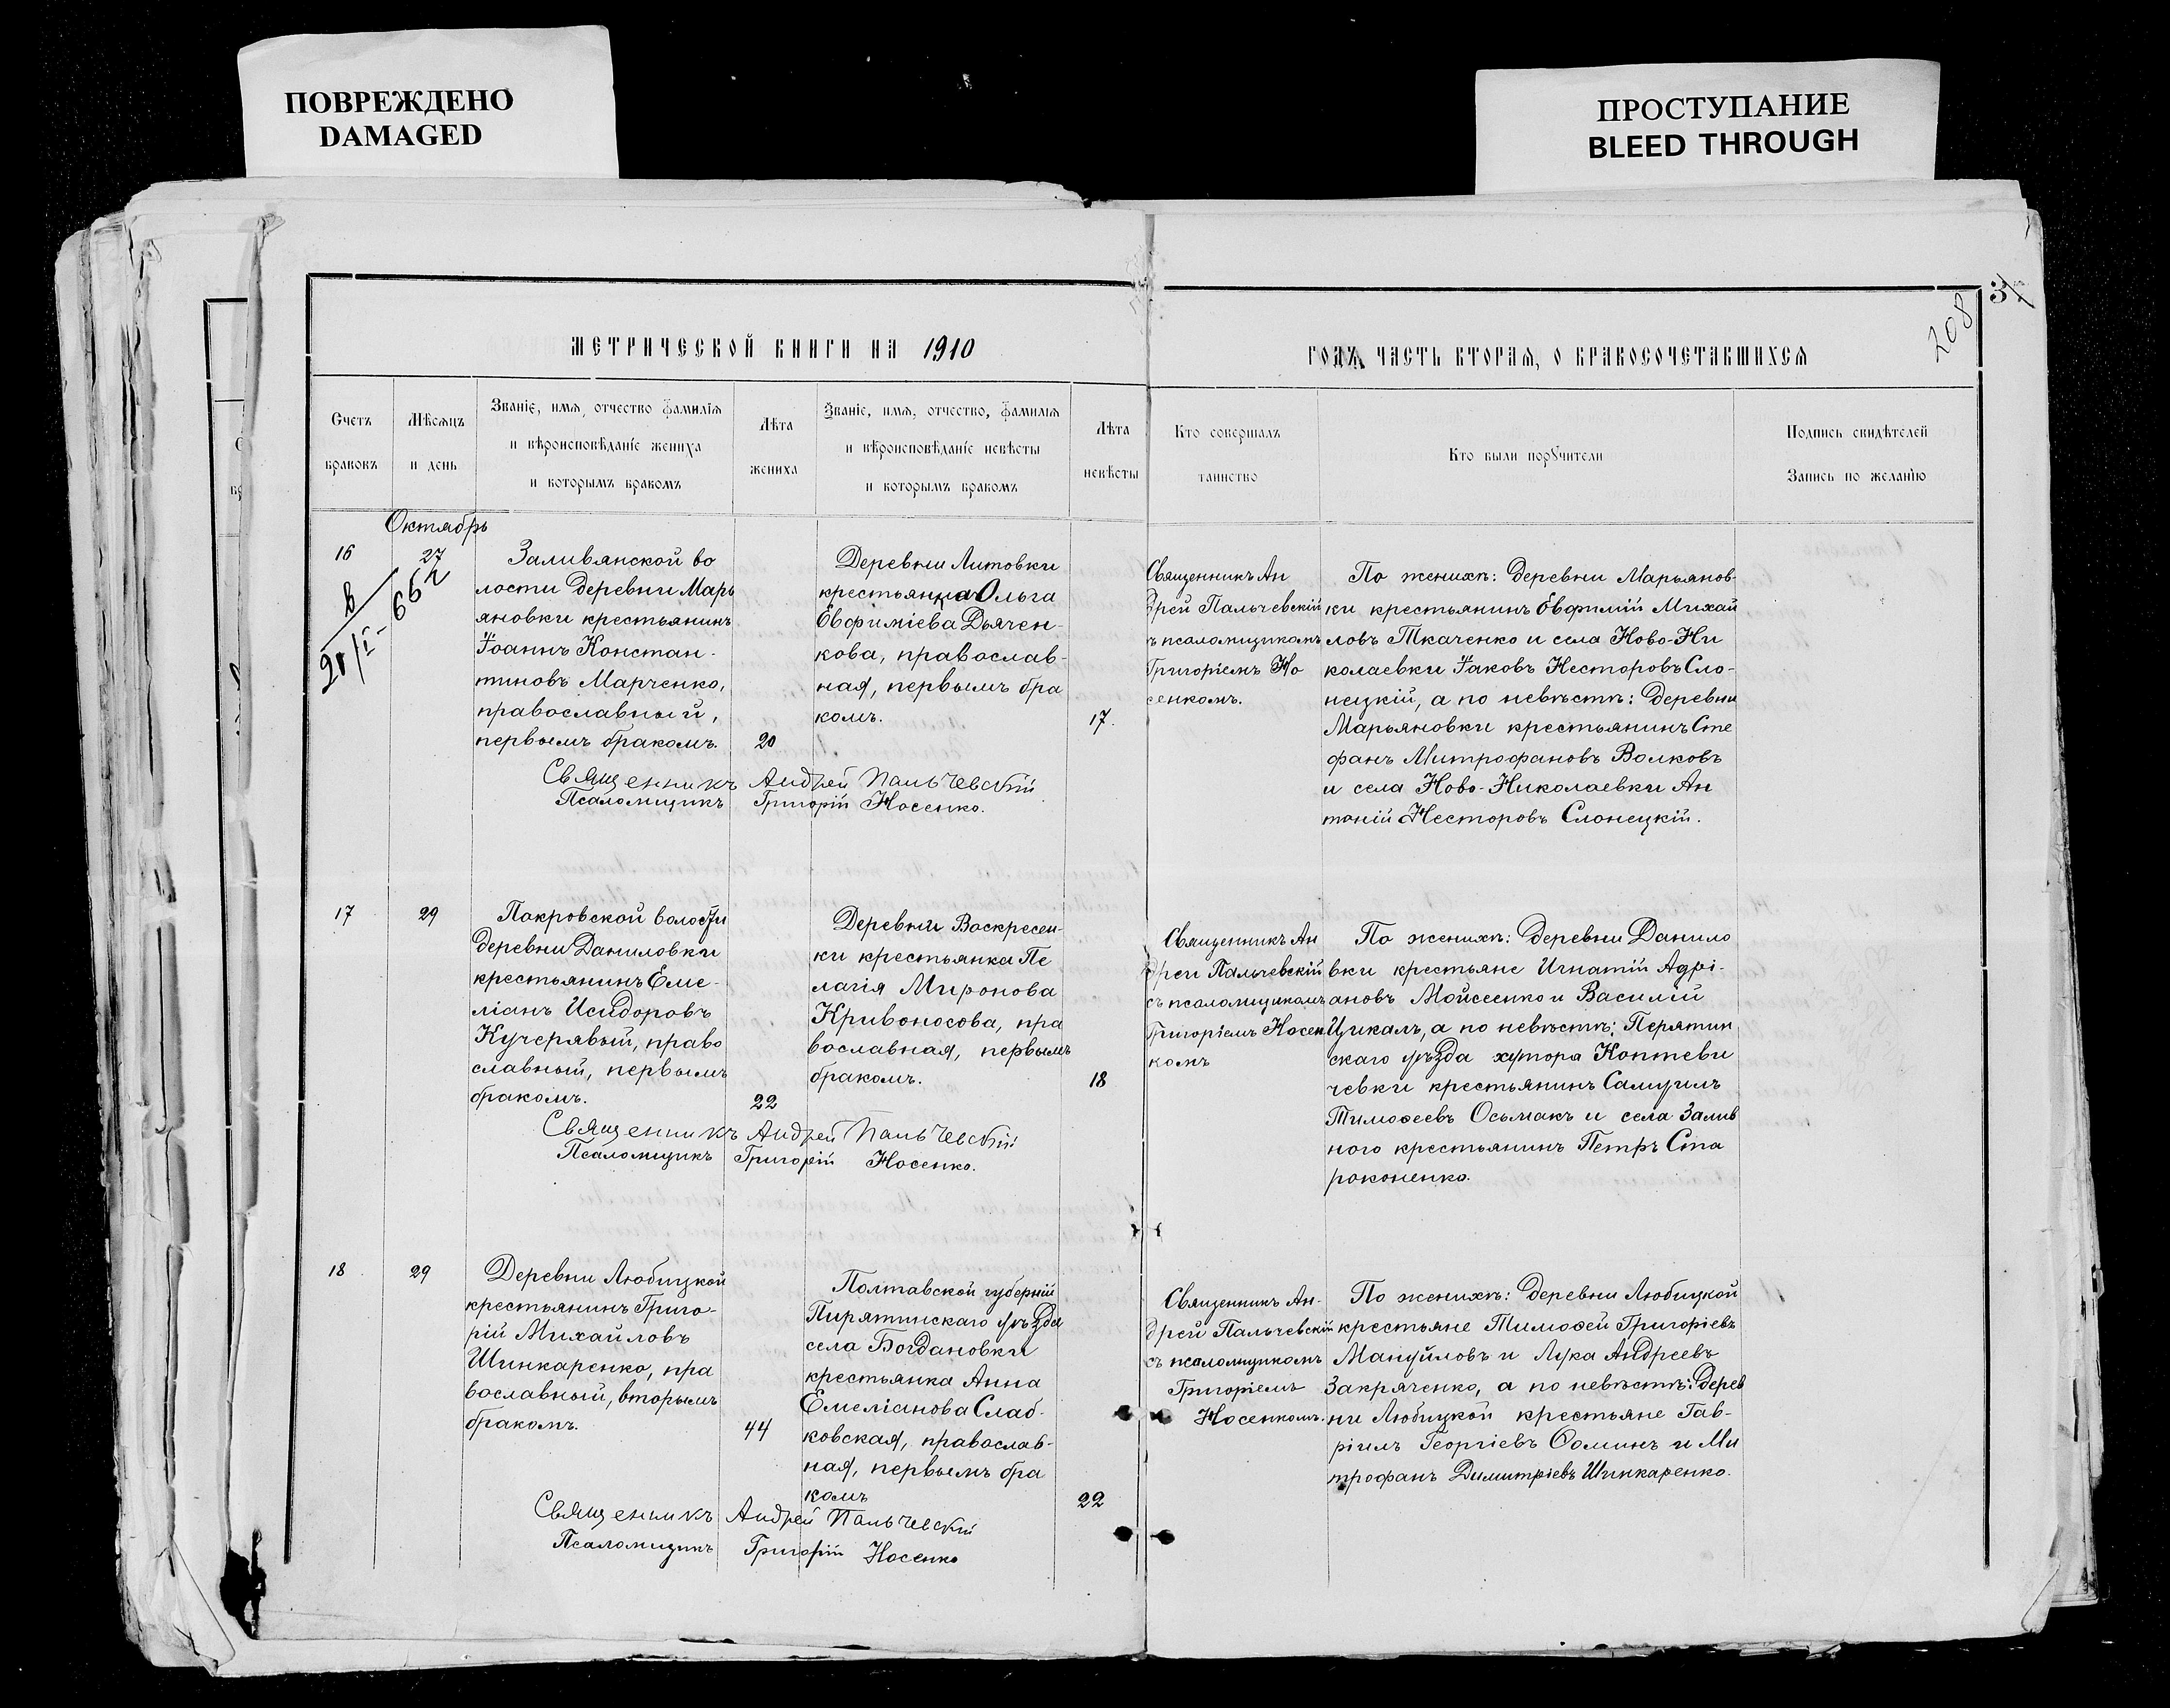 ПОВРЕЖДЕНО
DAMAGED
ПРОСТУПАНИЕ
BLEED THROUGH
208
МЕТРИЧЕСКОЙ КНИГИ НА 1910
ГОДЪ, ЧАСТЬ ВТОРАЯ, О БРАКОСОЧЕТАВШИХСЯ
Счетъ
браковъ
Мѣсяцъ
и день
Званіе, имя, отчество фамилія
и вѣроисповѣданіе жениха
и которымъ бракомъ
Лѣта
жениха
Званіе, имя, отчество, фамилія
и вѣроисповѣданіе невѣсты
и которымъ бракомъ
Лѣта
невѣсты
Кто совершалъ
таинство
Кто были поручители
Подпись свидѣтелей
Запись по желанію
Октябрь
16
27
662
Заливянской во
лости деревни Марь
яновки крестьянинъ
Іоаннъ Констан-
тиновъ Марченко,
православный,
первымъ бракомъ.
20
Деревни Литовки
крестьянка Ольга
Евфиміева Дьячен-
кова, православ-
ная, первымъ бра
комъ.
17.
Священникъ Ан
дрей Пальчевскій
съ псаломщикомъ
Григоріемъ Но
сенкомъ.
По женихѣ: деревни Марьянов-
ки крестьянинъ Евфимій Михай
ловъ Ткаченко и села Ново-Ни
колаевки Іаковъ Несторовъ Сло-
нецкій, а по невѣстѣ: деревни
Марьяновки крестьянинъ Сте
фанъ Митрофановъ Волковъ
и села Ново-Николаевки Ан
тоній Несторовъ Слонецкій.
Священникъ Андрей Пальчевскій
Псаломщикъ Григорій Носенко.
17
29
Покровской волости
деревни Даниловки
крестьянинъ Еме-
ліанъ Исидоровъ
Кучерявый, право
славный, первымъ
бракомъ.
22
Деревни Воскресен-
ки крестьянка Пе
лагія Миронова
Кривоносова, пра
вославная, первымъ
бракомъ.
18
Священникъ Ан
дрей Пальчевскій
съ псаломщикомъ
Григоріемъ Носен
комъ
По женихѣ: деревни Данило
вки крестьяне Игнатій Адрі-
ановъ Мойсеенко и Василій
Цикалъ, а по невѣстѣ: Перятин
скаго уѣзда хутора Коптеви
чевки крестьянинъ Самуилъ
Тимоѳеевъ Осьмакъ и села Залив
ного крестьянинъ Петръ Ста
роконенко.
Священникъ Андрей Пальчевскій
Псаломщикъ Григорій Носенко.
18
29
Деревни Любицкой
крестьянинъ Григо-
рій Михайловъ
Шинкаренко, пра
вославный, вторымъ
бракомъ.
44
Полтавской губерніи
Пирятинскаго уѣзда
села Богдановки
крестьянка Анна
Емеліанова Слаб-
ковская, православ-
ная, первымъ бра
комъ
22
Священникъ Ан-
дрей Пальчевскій
съ псаломщикомъ
Григоріемъ
Носенкомъ.
По женихѣ: деревни Любицкой
крестьяне Тимоѳей Григоріевъ
Мануйловъ и Лука Андреевъ
Закряченко, а по невѣстѣ: дерев
ни Любицкой крестьяне Гав-
ріилъ Георгіевъ Ѳоминъ и Ми
трофанъ Димитріевъ Шинкаренко.
Священникъ Андрей Пальчевскій
Псаломщикъ Григорій Носенко